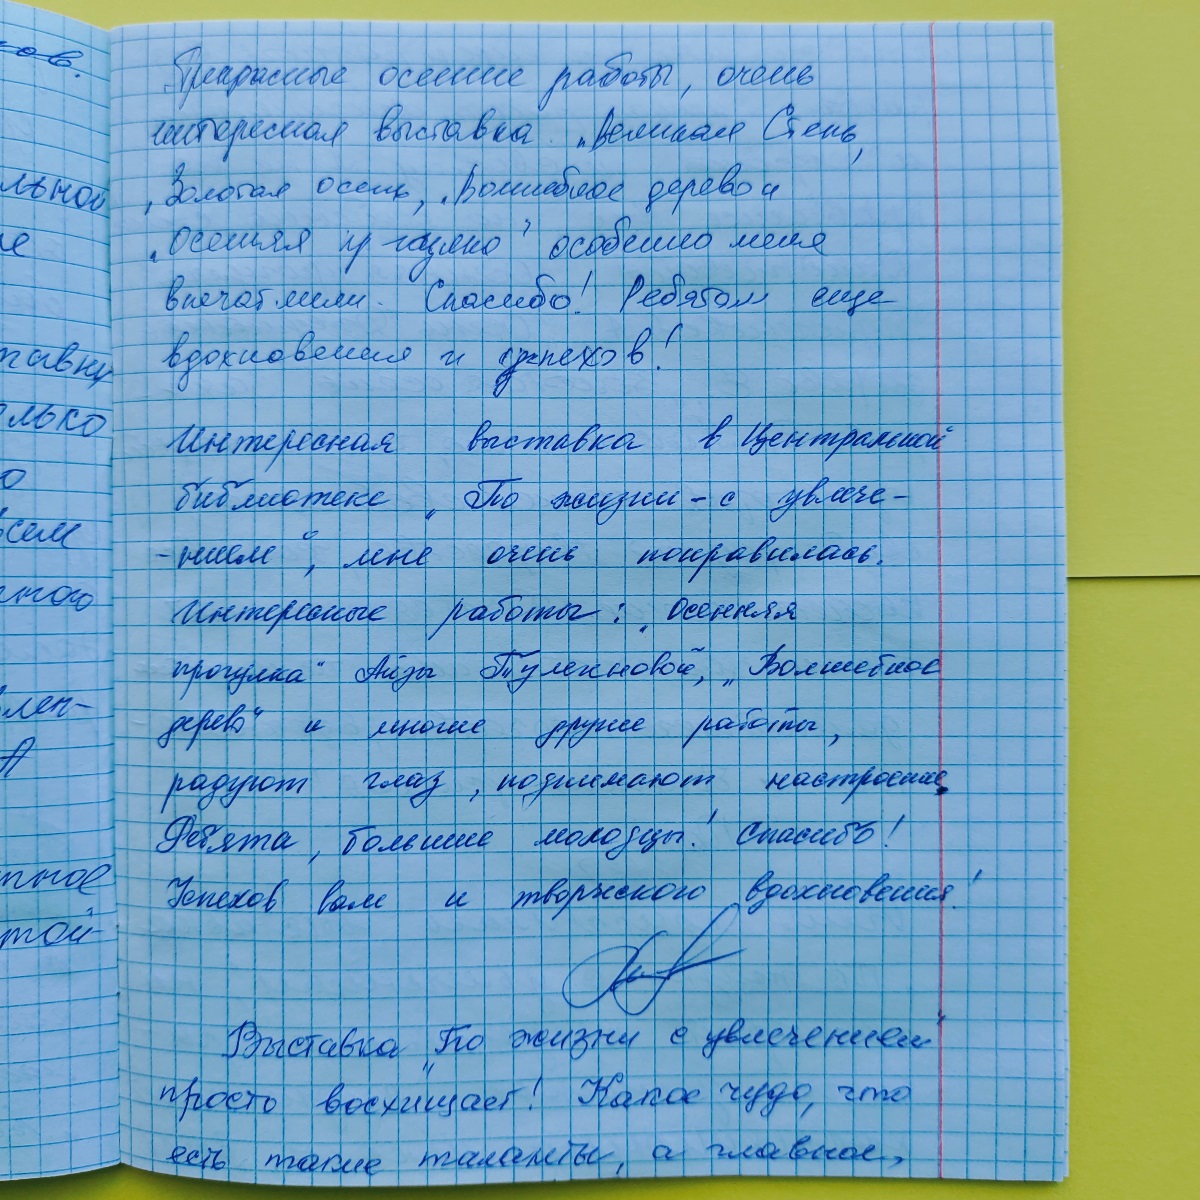 ков.
льной
е
тавку
лько
о
всем
ного
лен-
А
тное
той
Прекрасные осенние работы, очень
интересная выставка. „Великая Степь,
„Золотая осень, „Волшебное дерево и
„Осенняя " особенно меня
впечатлили. Спасибо! Ребятам еще
вдохновения и успехов!
Интересная выставка в Центральной
библиотеке „По жизни - с увлече-
-нием", мне очень понравилась.
Интересные работы: „Осенняя
прогулка" Айзы Тулекновой, „Волшебное
дерево" и многие другие работы,
радуют глаз, поднимают настроение.
Ребята, большие молодцы! Спасибо!
Успехов вам и творческого вдохновения!
Выставка „По жизни с увлечением"
просто восхищает! Какое чудо, что
есть такие таланты, а главное,